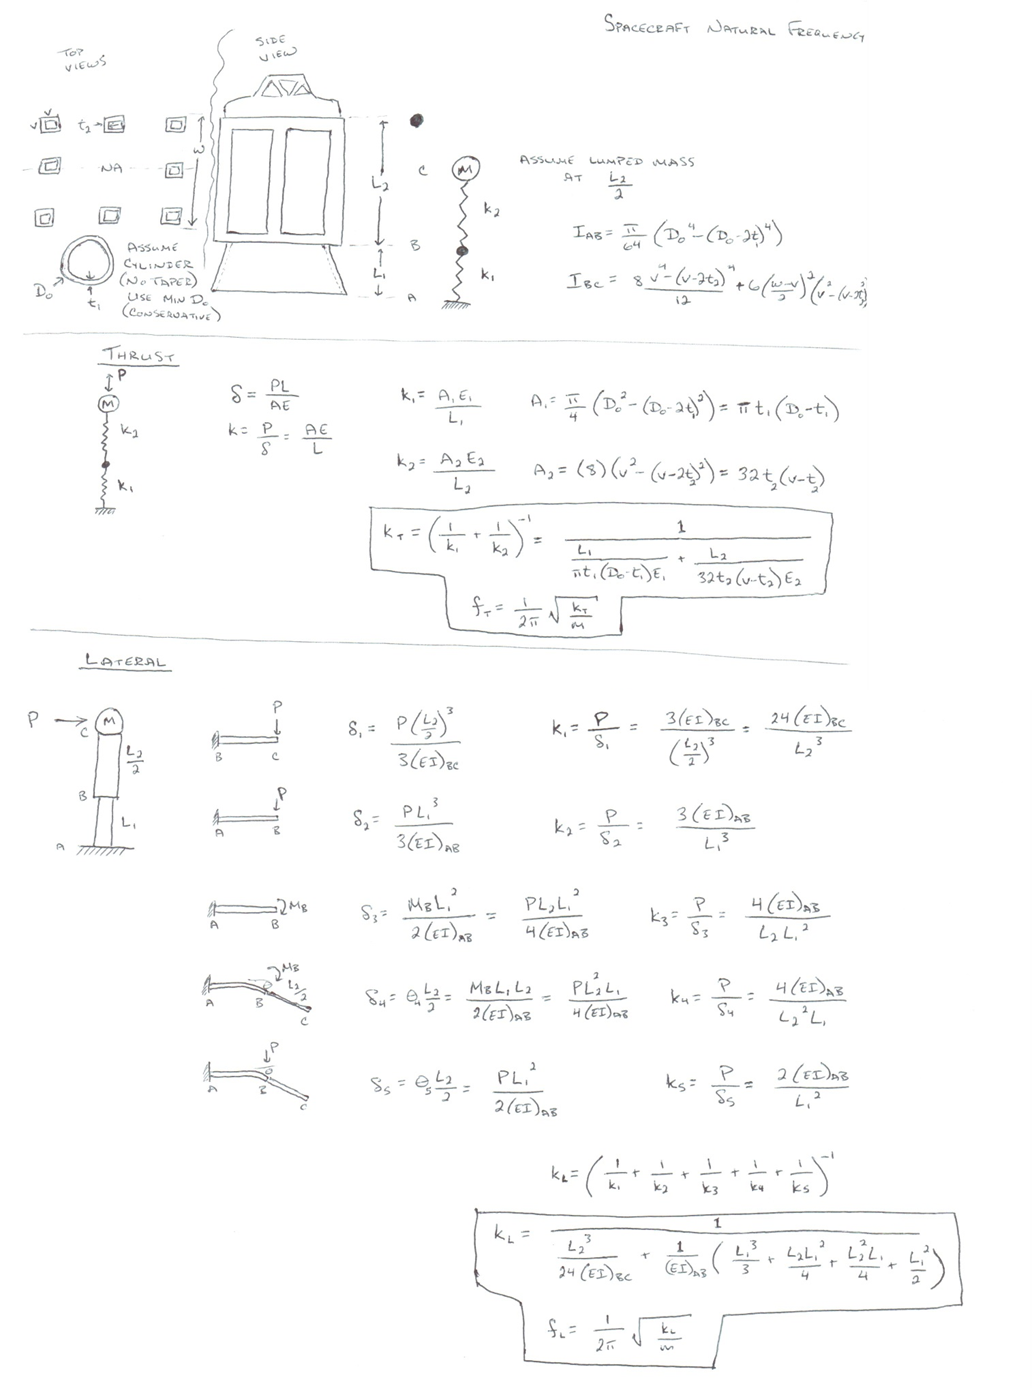 SPACECRAFT NATURAL FREQUENCY
TOP VIEWS
SIDE VIEW
v
v
t₂
w
NA
D₀
t₁
ASSUME
CYLINDER
(NO TAPER)
USE MIN D₀
(CONSERVATIVE)
L₂
L₁
C
B
A
M
k₂
k₁
ASSUME LUMPED MASS
AT L₂/2
I_AB = π/64 (D₀⁴-(D₀-2t)⁴)
I_BC = 8 (v⁴-(v-2t₂)⁴)/12 + 6((w-v)/2)²(v²-(v-2t)²
THRUST
P
M
k₂
k₁
δ = PL/AE
k = P/δ = AE/L
k₁ = A₁E₁/L₁
A₁ = π/4 (D₀²-(D₀-2t₁)²) = πt₁(D₀-t₁)
k₂ = A₂E₂/L₂
A₂ = (8)(v²-(v-2t₂)²) = 32t₂(v-t₂)
k_T = (1/k₁ + 1/k₂)⁻¹ = 1/(L₁/(πt₁(D₀-t₁)E₁) + L₂/(32t₂(v-t₂)E₂))
f_T = 1/2π √(k_T/m)
LATERAL
P
M
C
L₂/2
B
L₁
A
P
B C
δ₁ = P(L₂/2)³/3(EI)_BC
k₁ = P/δ₁ = 3(EI)_BC/(L₂/2)³ = 24(EI)_BC/L₂³
P
A B
δ₂ = PL₁³/3(EI)_AB
k₂ = P/δ₂ = 3(EI)_AB/L₁³
M_B
A B
δ₃ = M_BL₁²/2(EI)_AB = PL₂L₁²/4(EI)_AB
k₃ = P/δ₃ = 4(EI)_AB/L₂L₁²
M_B
L₂/2
A B C
δ₄ = θ₄ L₂/2 = M_BL₁L₂/2(EI)_AB = PL₂²L₁/4(EI)_AB
k₄ = P/δ₄ = 4(EI)_AB/L₂²L₁
P
θ
A B C
δ₅ = θ₅ L₂/2 = PL₁²/2(EI)_AB
k₅ = P/δ₅ = 2(EI)_AB/L₁²
k_L = (1/k₁ + 1/k₂ + 1/k₃ + 1/k₄ + 1/k₅)⁻¹
k_L = 1/(L₂³/24(EI)_BC + 1/(EI)_AB (L₁³/3 + L₂L₁²/4 + L₂²L₁/4 + L₁²/2))
f_L = 1/2π √(k_L/m)